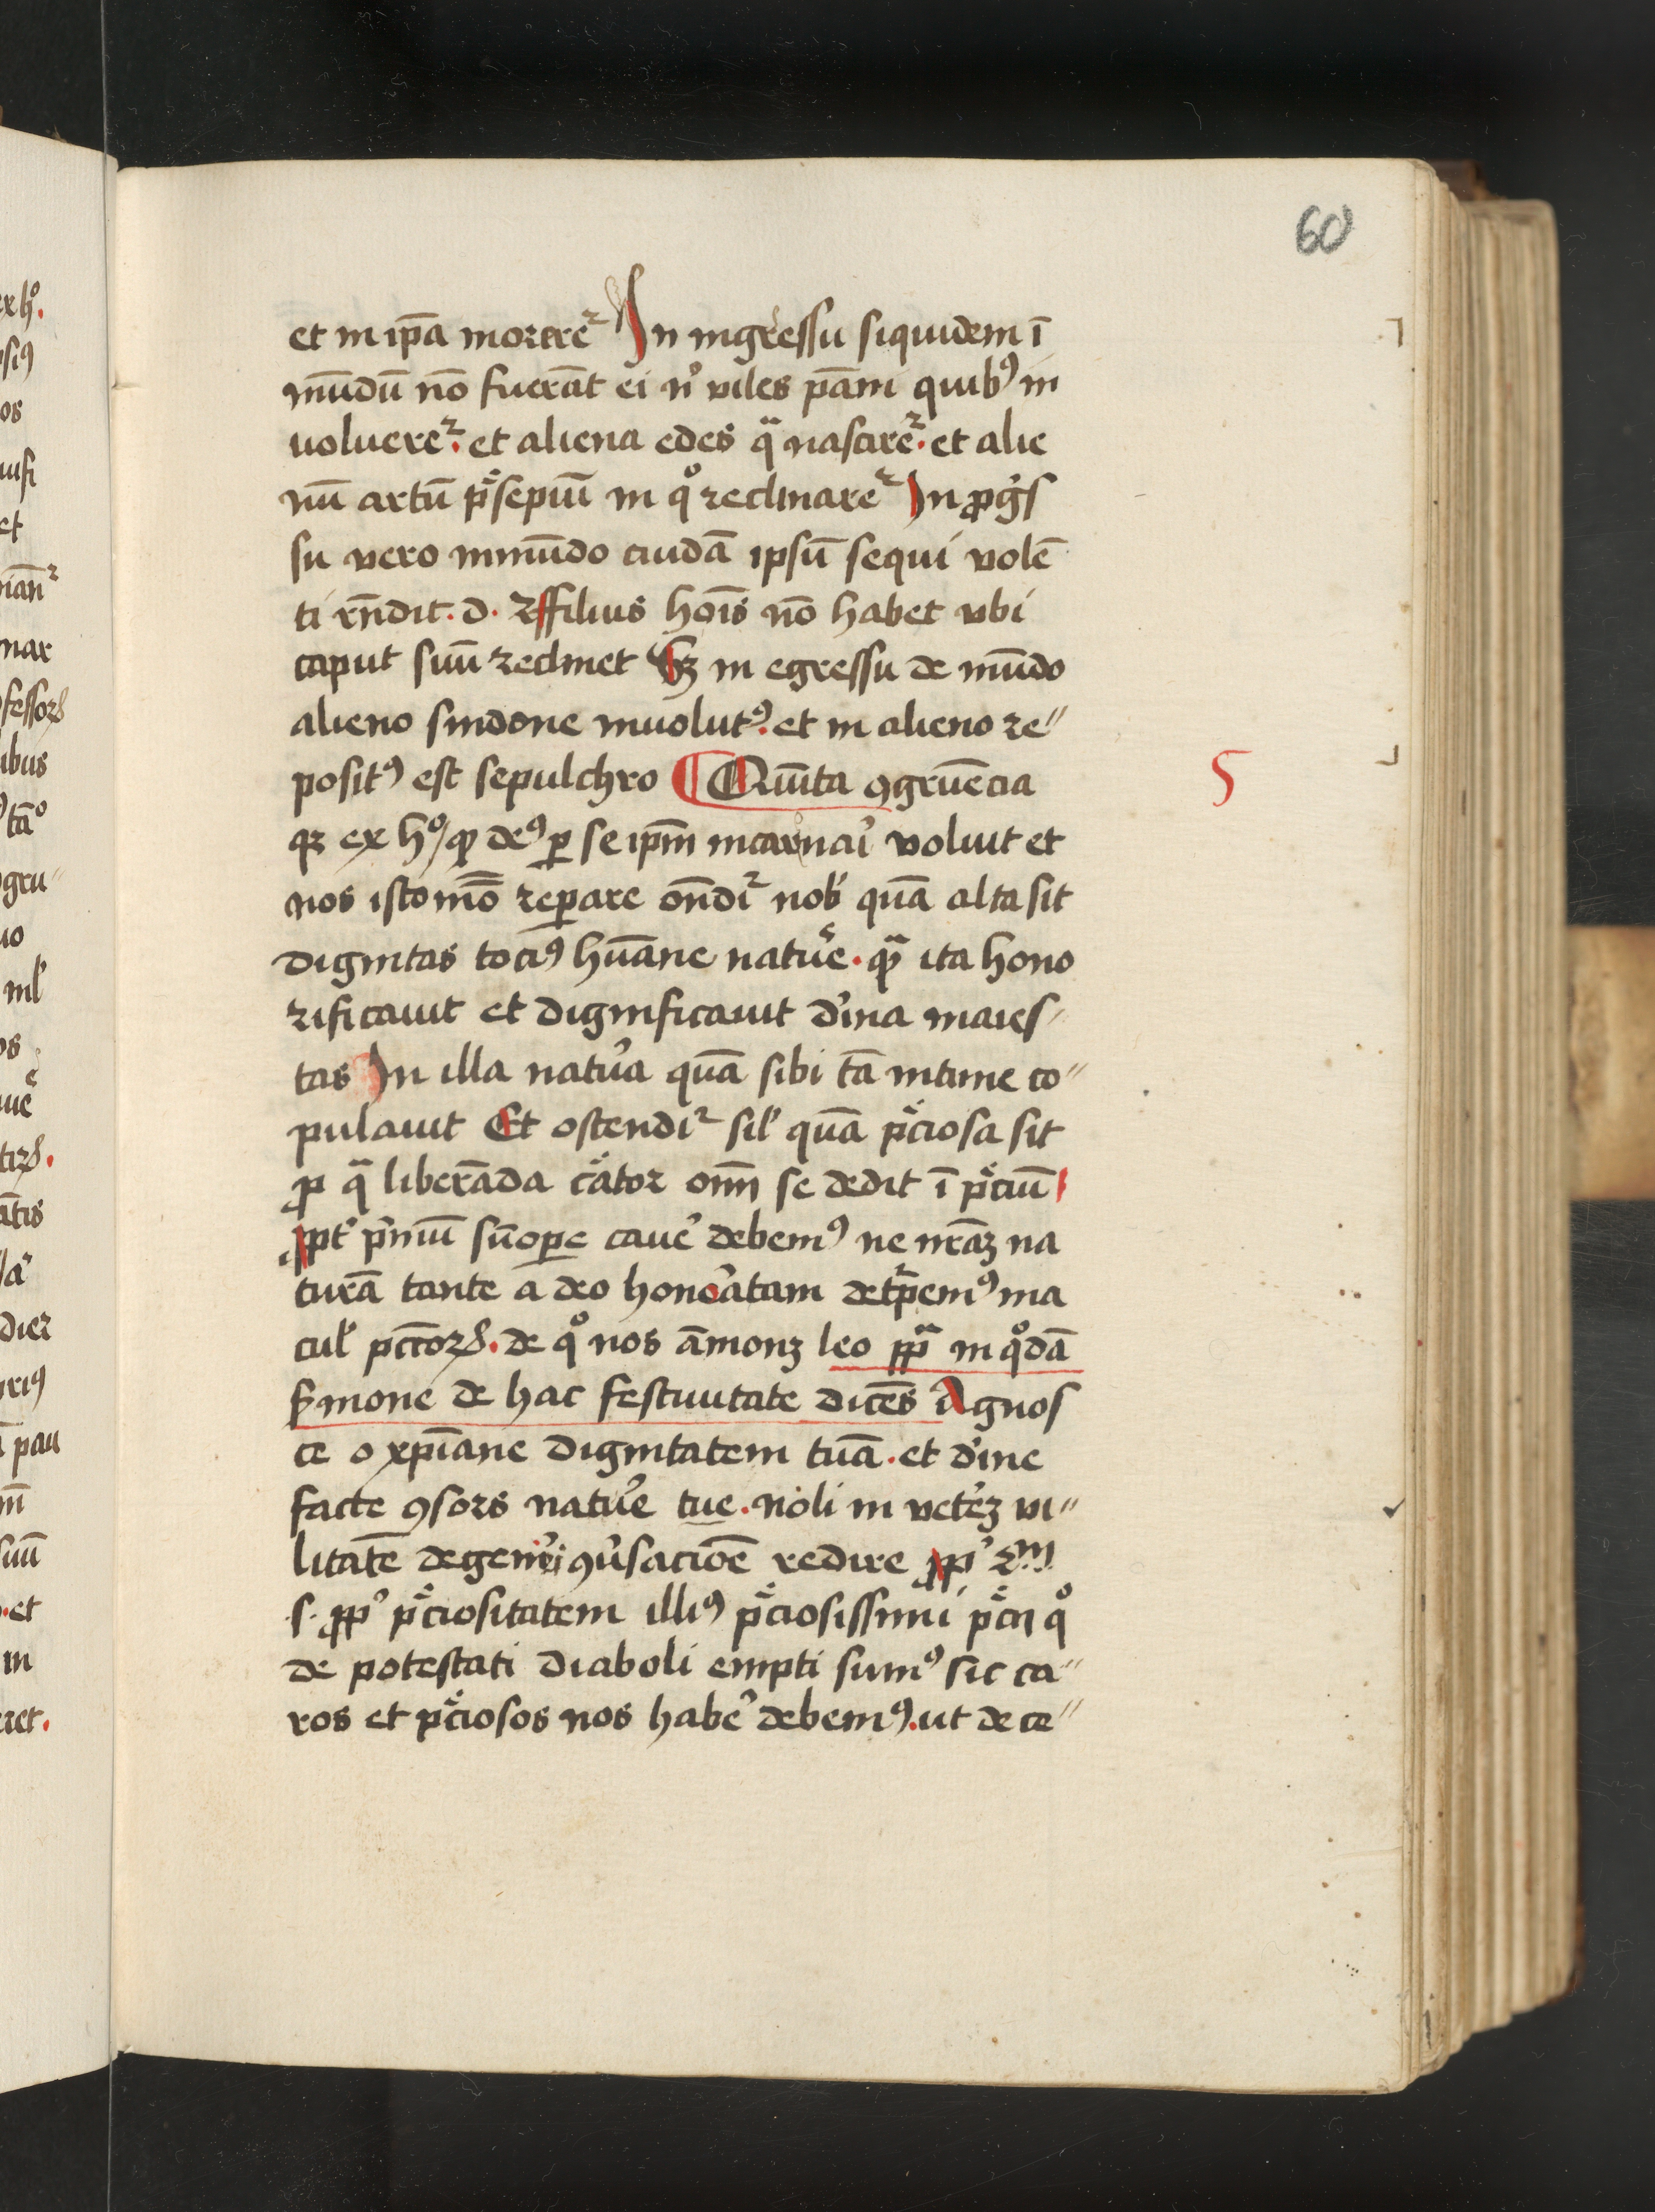 60
et in ip̄a moreret᷑ In ingressu siquidem ī
mūdū nō fuerāt ei nͥ viles pāni quibꝰ in
uolueret᷑. et aliena edes qᷓ nasceret᷑. et alie
nū artū p̄sepiū in qͦ reclinaret᷑ In ꝓgͥs
su vero inmūdo cuidā ipsū sequi volē
ti rn̄dit. d. filius hoīs nō habet vbi
caput suū reclinet Sꝫ in egressu de mūdo
alieno sindone inuolutꝰ. et in alieno re〃
positꝰ est sepulchro ¶ Quīta ꝯgruēcia
5
qꝛ ex hͦ/ ꝙ deꝰ ꝑ se ipm̄ incarnaī voluit et
nos isto mō reꝑare on̄dit᷑ nob̾ quā alta sit
dignitas tociꝰ hūane natuͤ. qᷓ ita hono
rificauit et dignificauit dͥina maies〃
tas In illa natuͣa quā sibi tā intime co〃
pulauit Et ostendit᷑ sil̾ quā p̄ciosa sit
ꝓ qᷓ liberāda cͣator om̄ se dedit ī p̄ciū
ꝓpt̾ pͥmū sūoꝑe caue᷑ debemꝰ ne nr̄aꝫ na
turā tante a deo honoͣatam detͥpemꝰ ma
cul̾ pctōꝝ. de qͦ nos āmonꝫ leo ppᷓ in qͦdā
ẜmone de hac festiuitate dicēs Agnos
ce o xp̄iane dignitatem tuā. et dͥine
facte ꝯsors natuͤ tue. noli in vetẽꝫ vi〃
litatē degen̾i ꝯu̾sacīoē redire ꝓp̾ 2m
s. ꝓp̾ p̄ciositatem illiꝰ p̄ciosissimi p̄cij qͦ
de potestati diaboli empti sumꝰ sic ca〃
ros et p̄ciosos nos habe᷑ debemꝰ. ut de ce〃